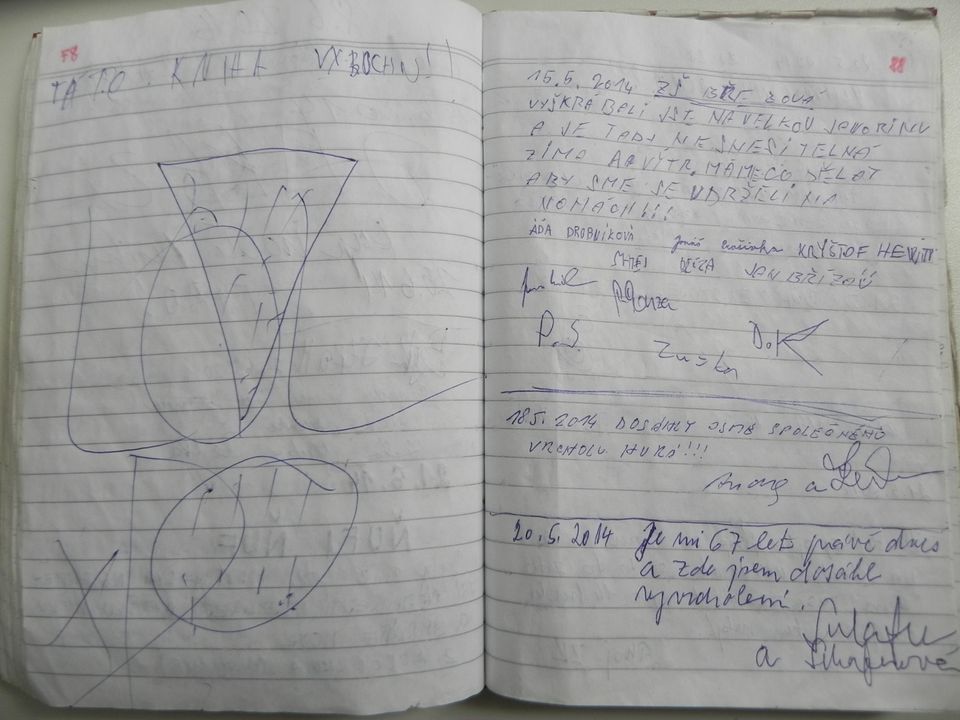 78
TATO KNIHA
88
15.5. 2014 ZŠ BŘEZOVÁ
VYŠKRÁBALI JSE NA VELKOU JAVORINU
A JE TADY NESNESITELNÁ
ZIMA A VÍTR. MÁME CO DĚLAT
ABY SME SE UDRŽELI NA
NOHÁCH!!!
ÁĎA DROBNÍKOVÁ KRYŠTOF
JAN
P.S.
Zuzka
18.5. 2014 DOSÁHLY JSME SPOLEČNÉHO
VRCHOLU HURÁ!!!
a
20.5. 2014 Je mi 67 let právě dnes
a zde jsem dosáhl
vyvrcholení.
a